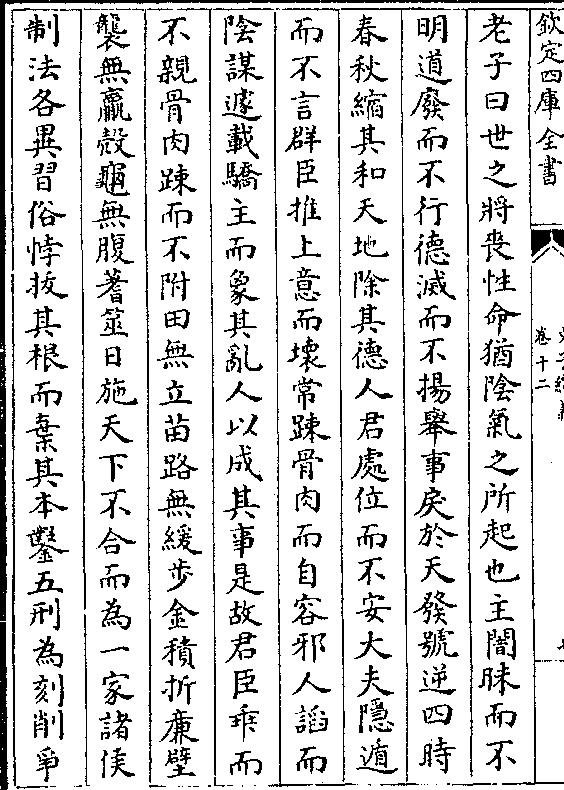 欽定四庫全書
卷十二
老子曰世之將喪性命猶陰氣之所起也主闇昧而不
明道廢而不行德滅而不揚舉事戾於天發號逆四時
春秋縮其和天地除其德人君處位而不安大夫隱遁
而不言群臣推上意而壞常踈骨肉而自容邪人諂而
陰謀遽載驕主而象其亂人以成其事是故君臣乖而
不親骨肉踈而不附田無立苗路無緩步金積折廉壁
襲無贏殻龜無腹蓍筮日施天下不合而為一家諸侯
制法各異習俗悖拔其根而棄其本鑿五刑為刻削爭